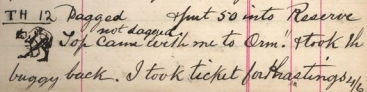 TH 12 Dagged & put 50 into Reserve
not dagged
Top came with me to Orm.! & took th
buggy back. I took ticket for Hastings 4/6